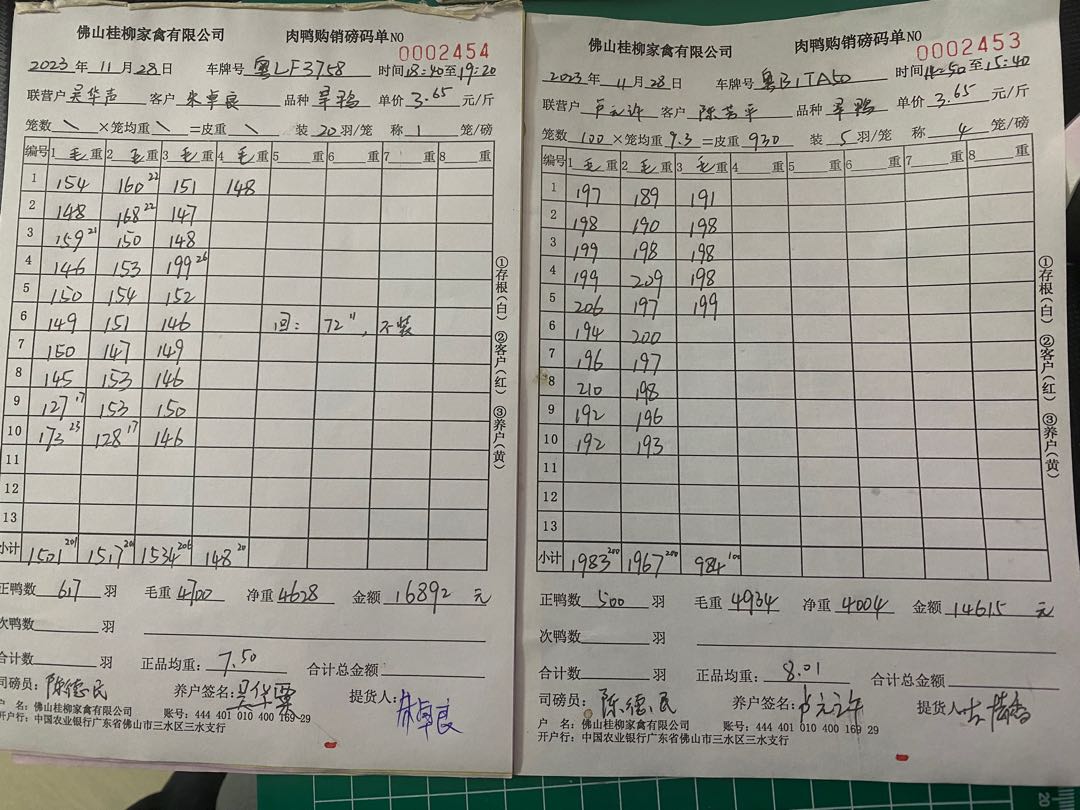 佛山桂柳家禽有限公司 肉鸭购销磅码单NO 0002454
2023年11月28日 车牌号 粤LF3758 时间18:40至19:20
联营户 吴华声 客户 朱卓良 品种 旱鸭 单价 3.65 元/斤
笼数 \ ×笼均重 \ =皮重 \ 装 20 羽/笼 称 1 笼/磅
编号 1 毛 重 2 毛 重 3 毛 重 4 毛 重 5 重 6 重 7 重 8 重
1 154 160 22 151 148
2 148 168 22 147
3 159 21 150 148
4 146 153 199 26
5 150 154 152
6 149 151 146 回: 72", 不装
7 150 147 149
8 145 153 146
9 127 17 153 150
10 173 23 128 17 146
11
12
13
小计 1501 201 1517 1534 206 148 20
正鸭数 617 羽 毛重 4700 净重 4628 金额 16892 元
次鸭数 羽
合计数 羽 正品均重: 7.50 合计总金额
司磅员: 陈德民 养户签名: 吴华 提货人: 卓良
户 名: 佛山桂柳家禽有限公司 账号: 444 401 010 400 169 29
开户行: 中国农业银行广东省佛山市三水区三水支行
①存根(白) ②客户(红) ③养户(黄)
佛山桂柳家禽有限公司 肉鸭购销磅码单NO 0002453
2023年11月28日 车牌号 粤B1TA50 时间14:50至15:40
联营户 卢元许 客户 陈芳平 品种 旱鸭 单价 3.65 元/斤
笼数 100 ×笼均重 9.3 =皮重 930 装 5 羽/笼 称 4 笼/磅
编号 1 毛 重 2 毛 重 3 毛 重 4 重 5 重 6 重 7 重 8 重
1 197 189 191
2 198 190 198
3 199 198 198
4 199 209 198
5 206 197 199
6 194 200
7 196 197
8 210 198
9 192 196
10 192 193
11
12
13
小计 1983 200 1967 200 984 100
正鸭数 500 羽 毛重 4934 净重 4004 金额 14615 元
次鸭数 羽
合计数 羽 正品均重: 8.01 合计总金额
司磅员: 陈德民 养户签名: 卢元许 提货人
户 名: 佛山桂柳家禽有限公司 账号: 444 401 010 400 169 29
开户行: 中国农业银行广东省佛山市三水区三水支行
①存根(白) ②客户(红) ③养户(黄)